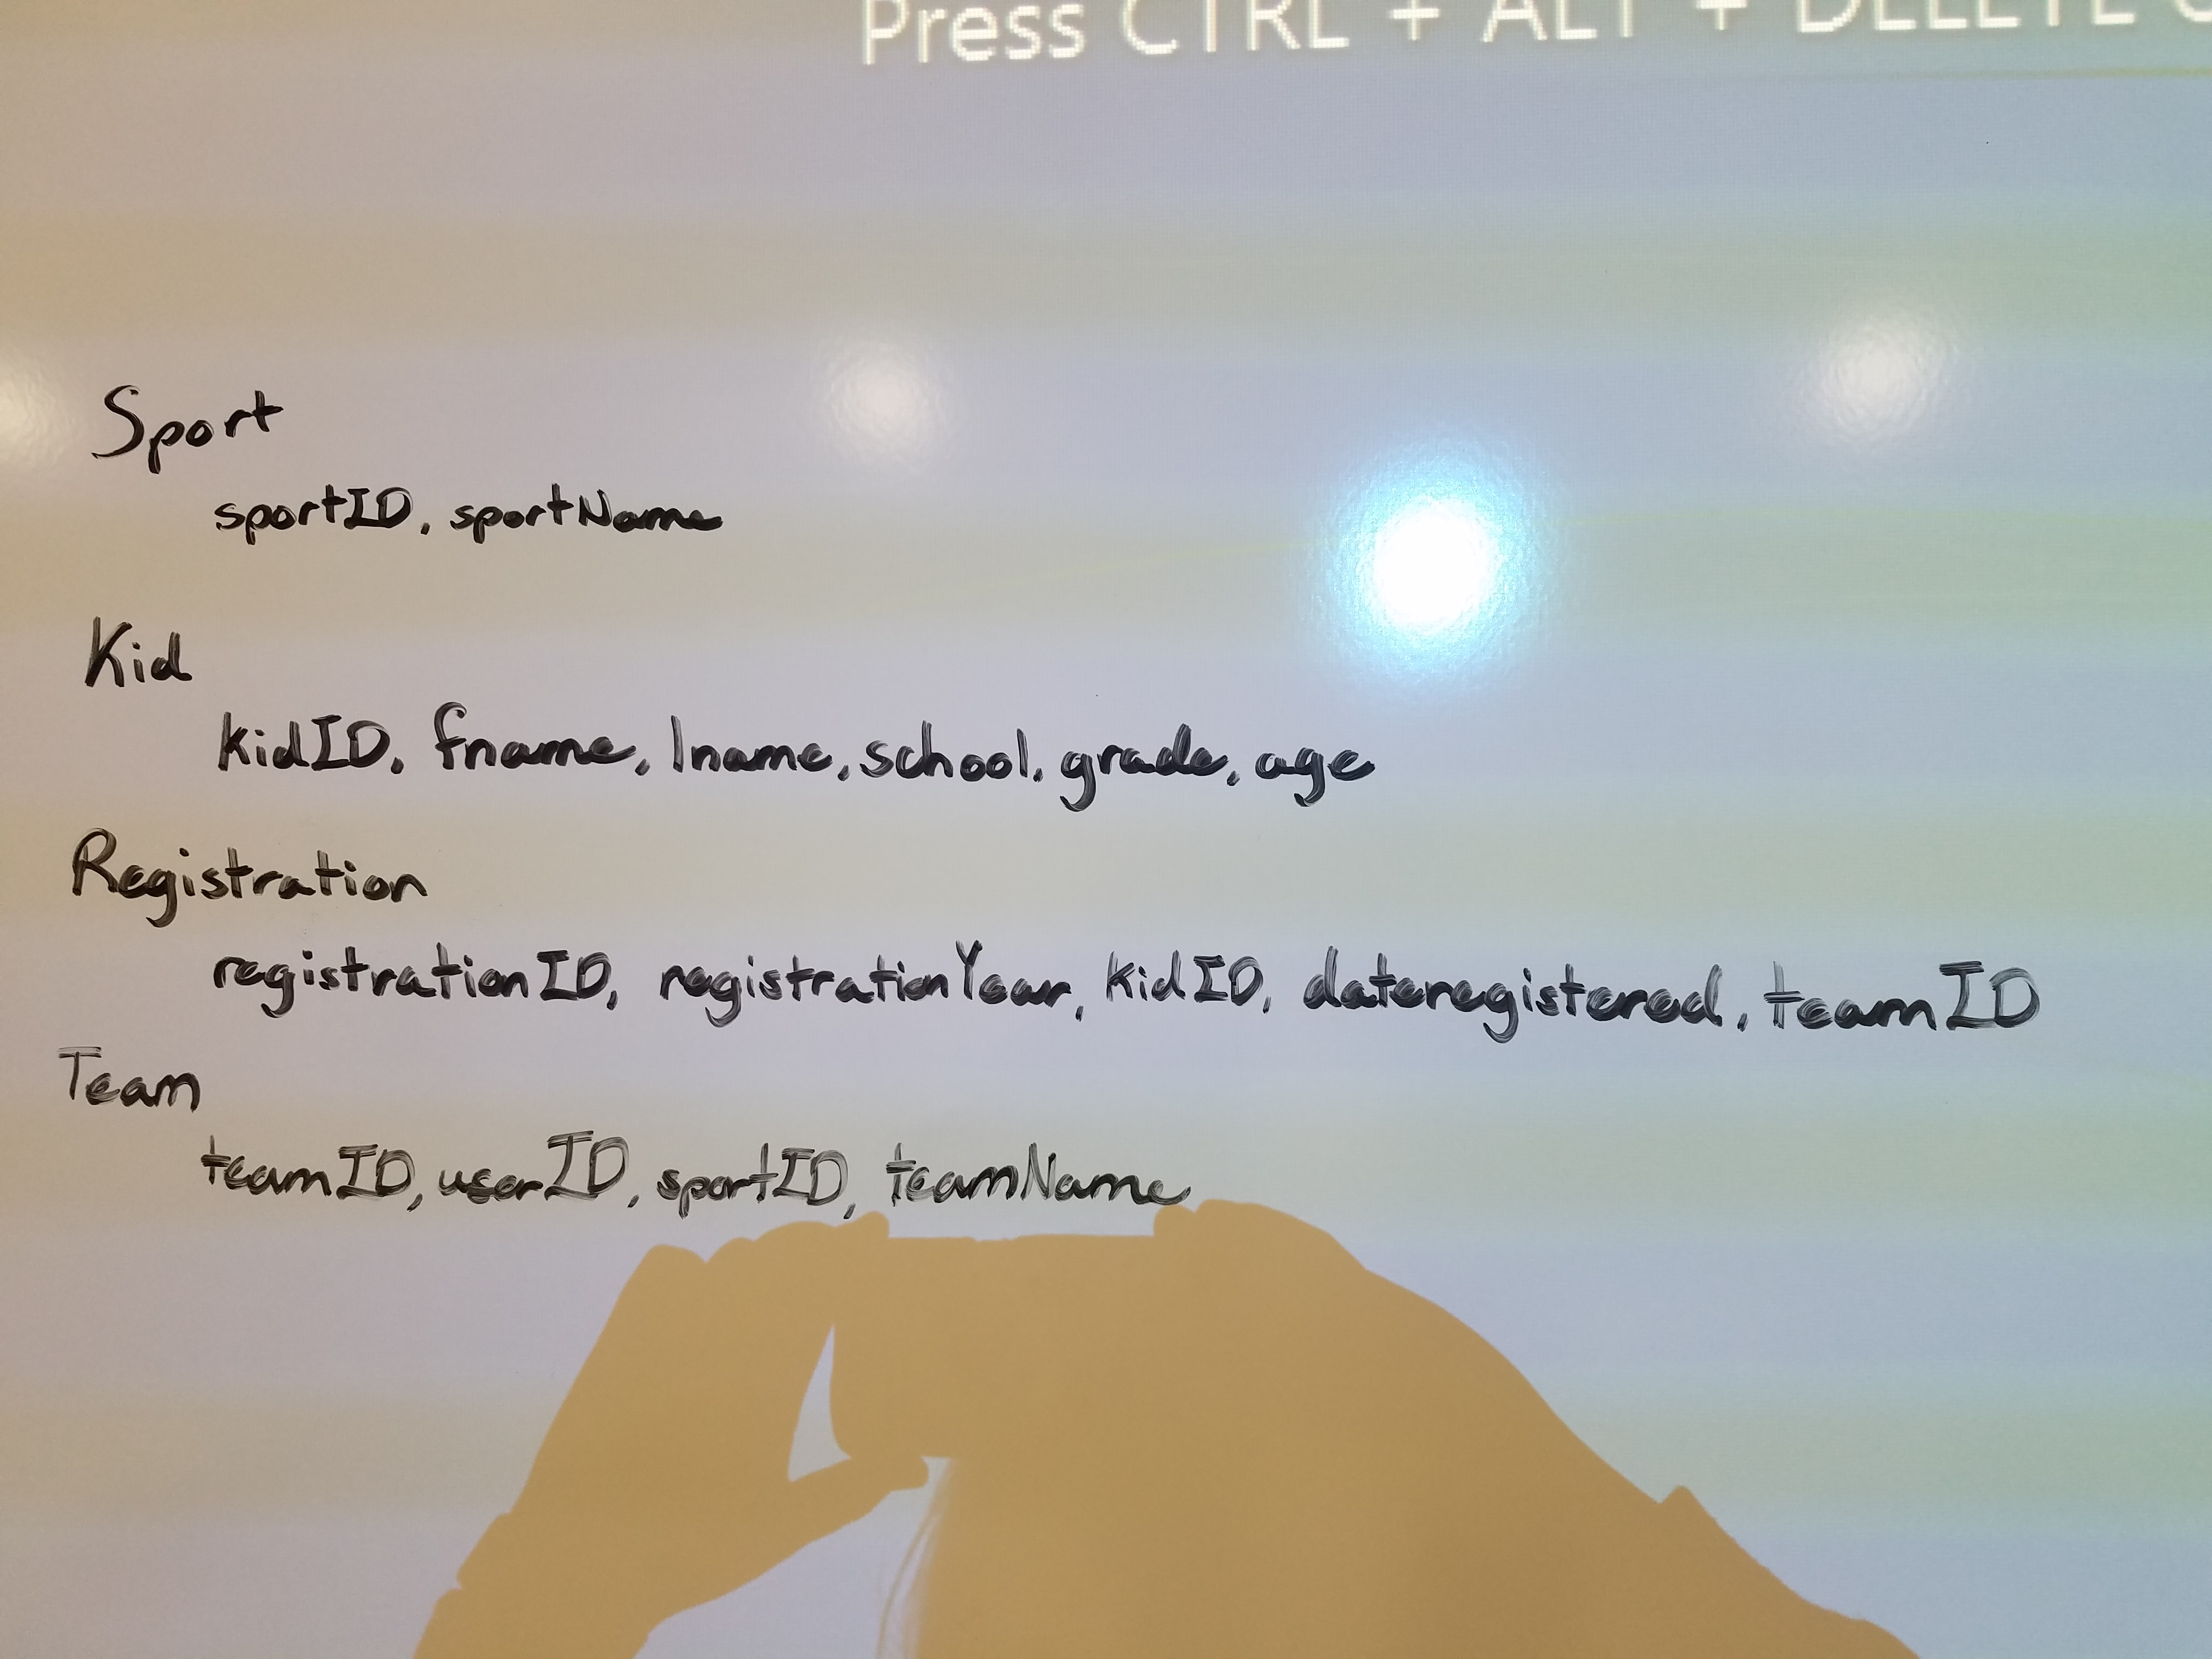 Press CTRL + ALT + DELETE
Sport
sportID, sportName
Kid
kidID, fname, lname, school, grade, age
Registration
registrationID, registrationYear, kidID, dateregistered, teamID
Team
teamID, userID, sportID, teamName